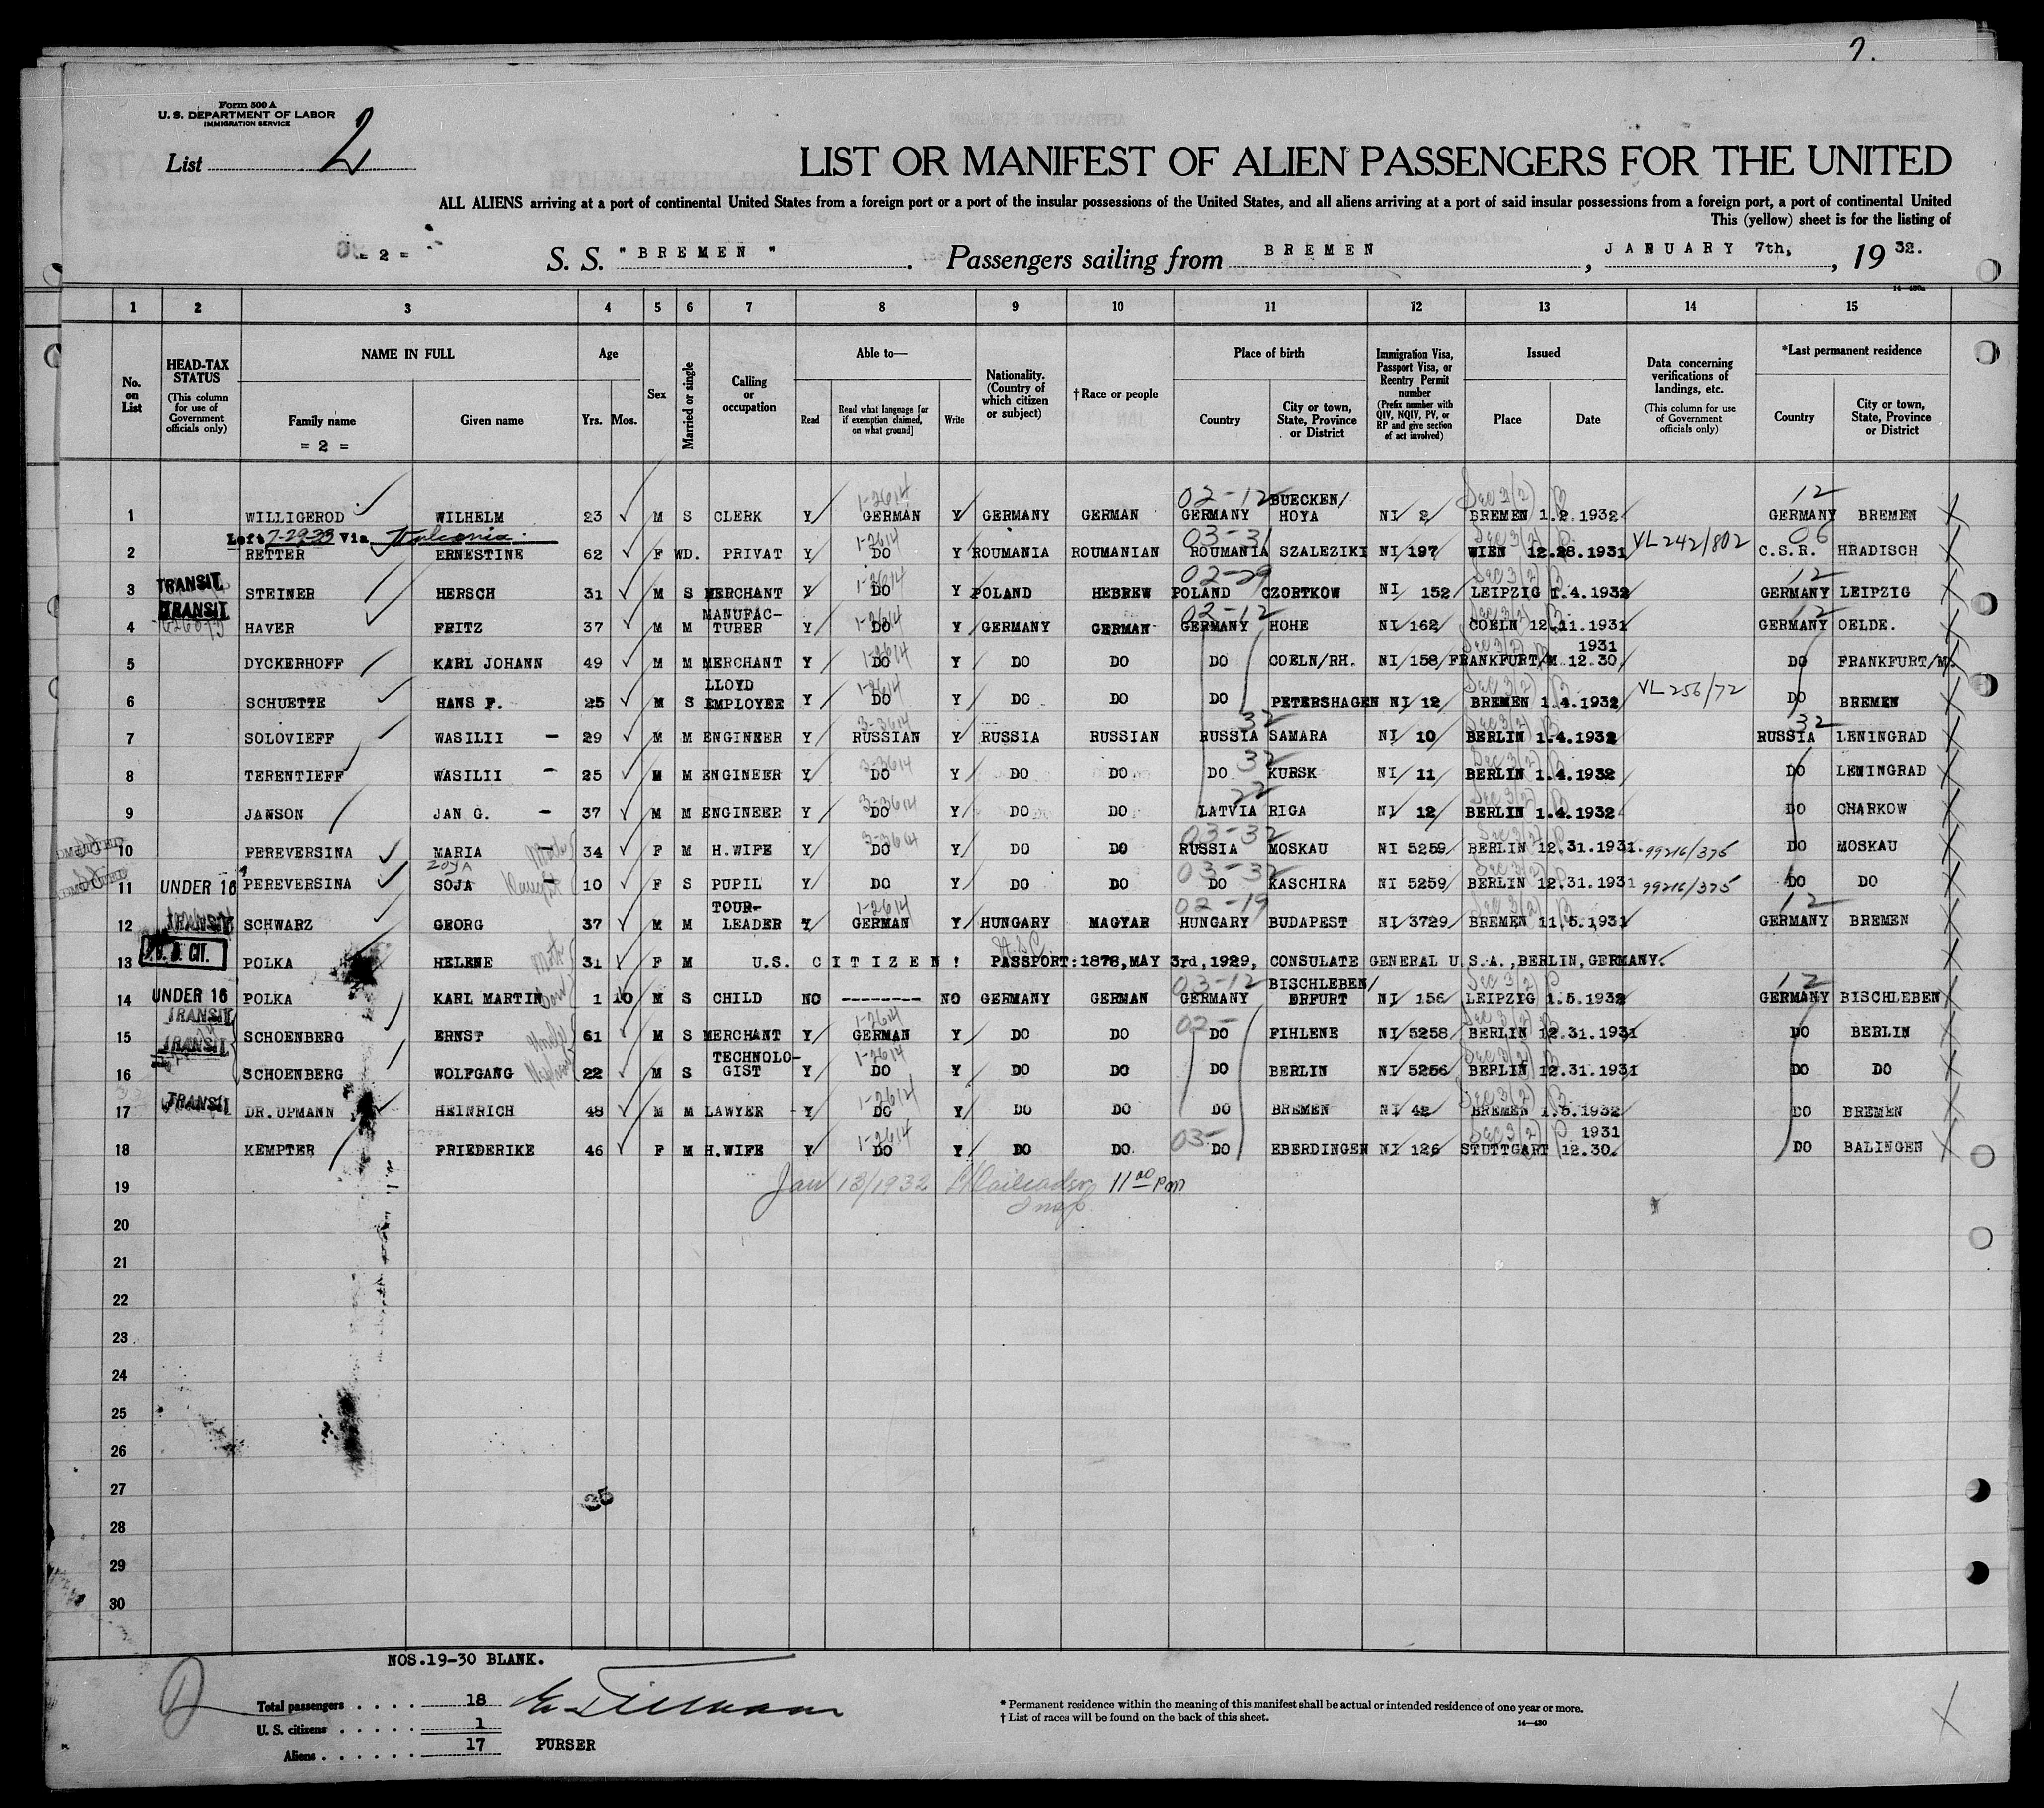 2.
Form 500 A
U. S. DEPARTMENT OF LABOR
IMMIGRATION SERVICE
List 2
LIST OR MANIFEST OF ALIEN PASSENGERS FOR THE UNITED
ALL ALIENS arriving at a port of continental United States from a foreign port or a port of the insular possessions of the United States, and all aliens arriving at a port of said insular possessions from a foreign port, a port of continental United
This (yellow) sheet is for the listing of
= 2 = S. S. "BREMEN". Passengers sailing from BREMEN, JANUARY 7th, 1932.
1 2 3 4 5 6 7 8 9 10 11 12 13 14 15
No. on List
HEAD-TAX STATUS (This column for use of Government officials only)
NAME IN FULL Family name = 2 = Given name
Age Yrs. Mos.
Sex
Married or single
Calling or occupation
Able to— Read Read what language [or if exemption claimed, on what ground] Write
Nationality. (Country of which citizen or subject)
† Race or people
Place of birth Country City or town, State, Province or District
Immigration Visa, Passport Visa, or Reentry Permit number (Prefix number with QIV, NQIV, PV, or RP and give section of act involved)
Issued Place Date
Data concerning verifications of landings, etc. (This column for use of Government officials only)
*Last permanent residence Country City or town, State, Province or District
1-2614 02-12 Sec 3(2) B 12
1 WILLIGEROD WILHELM 23 M S CLERK Y GERMAN Y GERMANY GERMAN GERMANY BUECKEN/ HOYA NI 2 BREMEN 1.2.1932 GERMANY BREMEN
Left 7-29-33 Via Vulcania 1-2614 03-31 Sec 3(2) 06
2 RETTER ERNESTINE 62 F WD. PRIVAT Y DO Y ROUMANIA ROUMANIAN ROUMANIA SZALEZIKI NI 197 WIEN 12.28.1931 VL 242/802 C.S.R. HRADISCH
TRANSIT 1-2614 02-29 Sec 3(2) B 12
3 STEINER HERSCH 31 M S MERCHANT Y DO Y POLAND HEBREW POLAND CZORTKOW NI 152 LEIPZIG 1.4.1932 GERMANY LEIPZIG
TRANSIT 1-2614 03-12 Sec 3(2) B 12
4 HAVER FRITZ 37 M M MANUFAC-TURER Y DO Y GERMANY GERMAN GERMANY HOHE NI 162 COELN 12.11.1931 GERMANY OELDE.
1-2614 Sec 3(2) B
5 DYCKERHOFF KARL JOHANN 49 M M MERCHANT Y DO Y DO DO DO COELN/RH. NI 158 FRANKFURT/M 12.30. 1931 DO FRANKFURT/M.
1-2614 Sec 3(2) B
6 SCHUETTE HANS F. 25 M S LLOYD EMPLOYEE Y DO Y DO DO DO PETERSHAGEN NI 12 BREMEN 1.4.1932 VL 256/72 DO BREMEN
3-3614 32 Sec 3(2) B 32
7 SOLOVIEFF WASILII - 29 M M ENGINEER Y RUSSIAN Y RUSSIA RUSSIAN RUSSIA SAMARA NI 10 BERLIN 1.4.1932 RUSSIA LENINGRAD
3-3614 32 Sec 3(2) B
8 TERENTIEFF WASILII - 25 M M ENGINEER Y DO Y DO DO DO KURSK NI 11 BERLIN 1.4.1932 DO LENINGRAD
3-3614 22 Sec 3(2) B
9 JANSON JAN G. - 37 M M ENGINEER Y DO Y DO DO LATVIA RIGA NI 12 BERLIN 1.4.1932 DO CHARKOW
ADMITTED 3-3614 03-32 Sec 3(2) P
10 PEREVERSINA MARIA - 34 F M H.WIFE Y DO Y DO DO RUSSIA MOSKAU NI 5259 BERLIN 12.31.1931. 99216/375 DO MOSKAU
ADMITTED ZOYA 03-32 Sec 3(2) P
11 UNDER 16 PEREVERSINA SOJA - 10 F S PUPIL Y DO Y DO DO DO KASCHIRA NI 5259 BERLIN 12.31.1931 99216/375 DO DO
TRANSIT 1-2614 02-19 Sec 3(2) B 12
12 SCHWARZ GEORG 37 M M TOUR-LEADER Y GERMAN Y HUNGARY MAGYAR HUNGARY BUDAPEST NI 3729 BREMEN 11.5.1931 GERMANY BREMEN
U. S. CIT. U.S.C.
13 POLKA HELENE Moth 31 F M U.S. CITIZEN! PASSPORT: 1878, MAY 3rd, 1929, CONSULATE GENERAL U.S.A., BERLIN, GERMANY.
03-12 Sec 3(2) P 12
14 UNDER 16 POLKA KARL MARTIN Son 1 10 M S CHILD NO -------- NO GERMANY GERMAN GERMANY BISCHLEBEN/ ERFURT NI 156 LEIPZIG 1.5.1932 GERMANY BISCHLEBEN
TRANSIT 1-2614 02- Sec 3(2) B
15 SCHOENBERG ERNST Uncle 61 M S MERCHANT Y GERMAN Y DO DO DO FIHLENE NI 5258 BERLIN 12.31.1931 DO BERLIN
TRANSIT 1-2614 Sec 3(2) B
16 SCHOENBERG WOLFGANG Nephew 22 M S TECHNOLO-GIST Y DO Y DO DO DO BERLIN NI 5256 BERLIN 12.31.1931 DO DO
TRANSIT 1-2614 Sec 3(2) B
17 DR. UPMANN HEINRICH 48 M M LAWYER Y DO Y DO DO DO BREMEN NI 42 BREMEN 1.5.1932 DO BREMEN
1-2614 03- Sec 3(2) P
18 KEMPTER FRIEDERIKE 46 F M H.WIFE Y DO Y DO DO DO EBERDINGEN NI 126 STUTTGART 12.30. 1931 DO BALINGEN
19 Jan 13/1932 11 00 PM
Insp
20
21
22
23
24
25
26
27
28
29
30
NOS. 19-30 BLANK.
Total passengers . . . . . 18
U. S. citizens . . . . . 1
Aliens . . . . . . 17 PURSER
* Permanent residence within the meaning of this manifest shall be actual or intended residence of one year or more.
† List of races will be found on the back of this sheet.
14—430